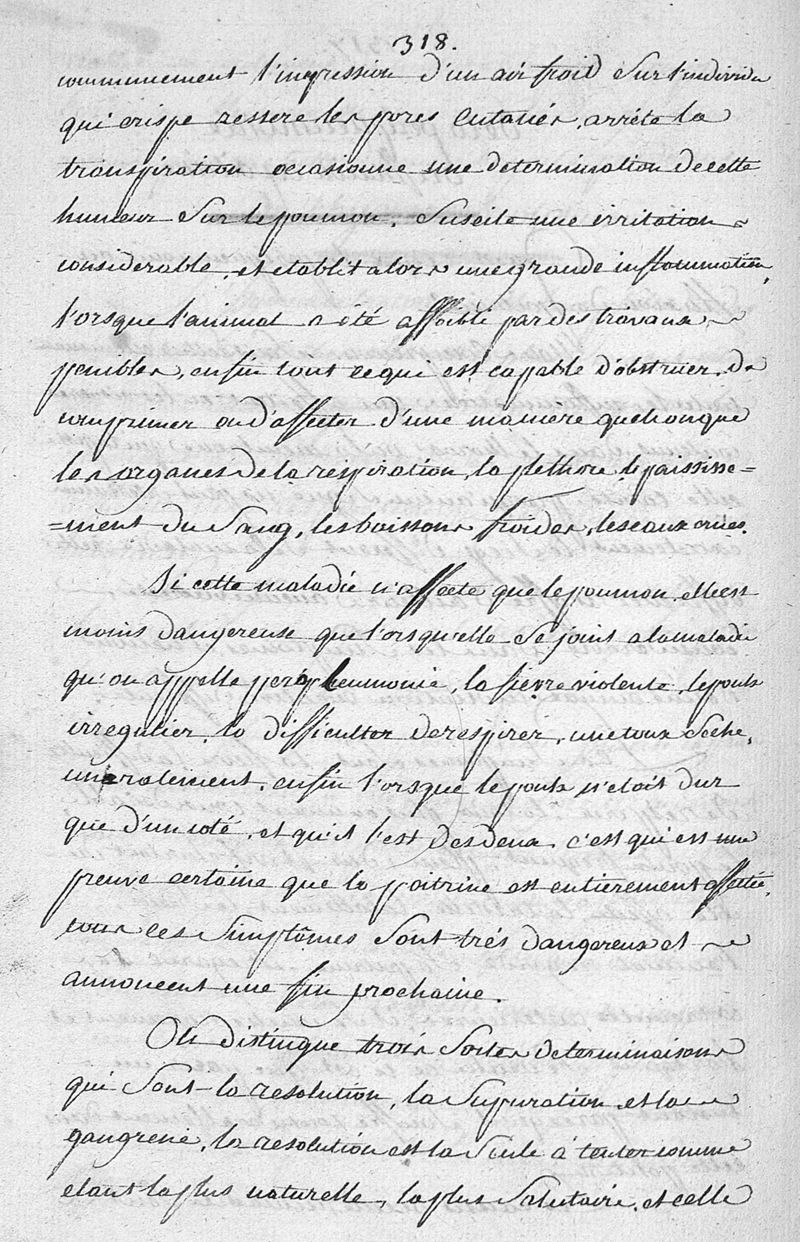 318.
communement l'impression d'un air froid Sur l'individu
qui crispe ressere les pores Cutanés, arrête la
transpiration occasionne une determination de cette
humeur Sur le poumon. Suscite une irritation
considerable, et etablit alors une grande inflammation,
l'orsque l'animal a été affoibli par des travaux
penibles, enfin tout ce que est capable d'obstruer. De
comprimer ou d'affecter d'une maniere quelconque
les organes de la respiration, la plethore, lepaississe=
=ment du Sang, les boissons froides, les eaux crües.
Si cette maladie n'affecte que le poumon, elle est
moins dangereuse que l'orsqu'elle Se joint a la maladie
qu'on appelle peripleumonie, la fievre violente, le pouls
irregulier, la difficulter de respirer, une toux Seche,
un ralement, enfin l'orsque le pouls n'etoit dur
que d'un coté, et qu'il l'est des deux, c'est qui est une
preuve certaine que la poitrine est entièrement affectée,
tous ces Simptômes Sont trés dangereux et
annoncent une fin prochaine.
On distingue trois Sortes de terminaisons
qui Sont la resolution, la Supuration et la
gangrene, la resolution est la Seule à tenter comme
etant la plus naturelle, la plus Salutaire, et celle